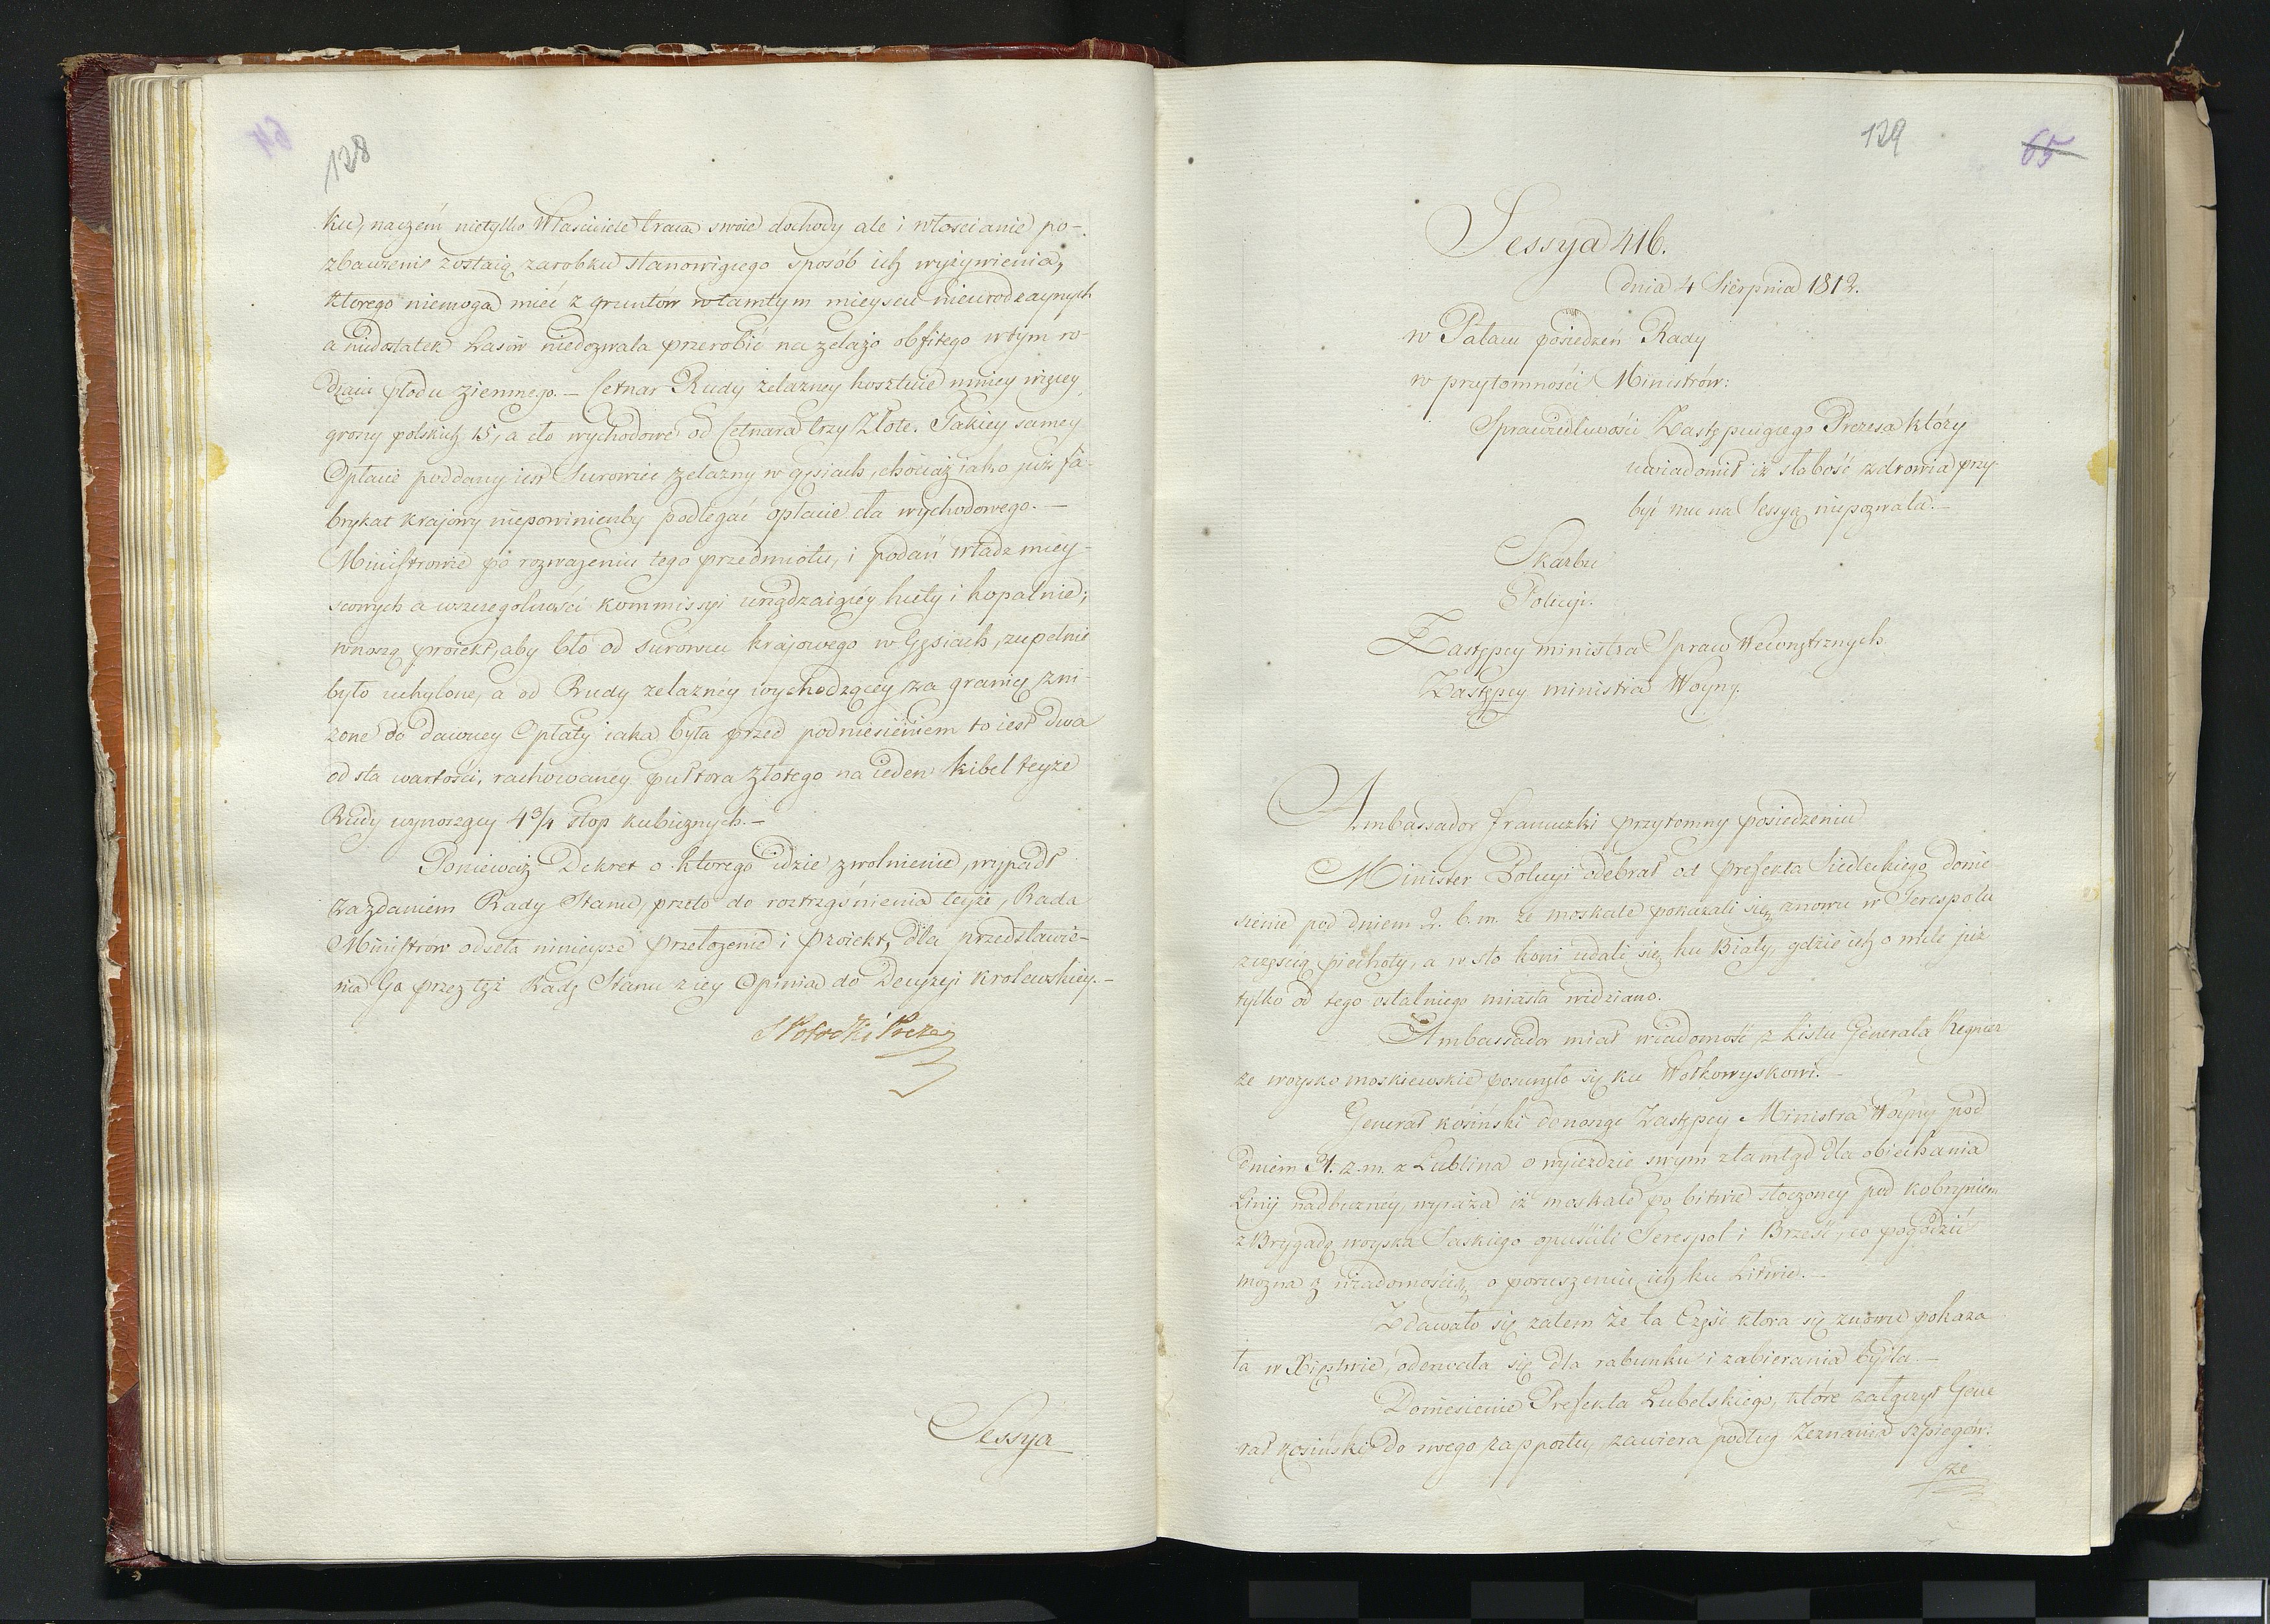 64
128
ku, naczém nietylko Właściciele traca swoie dochody ale i włoscianie po-
zbawieni zostaią zarobku stanowiącego sposób ich wyżywienia,
ktorego niemoga mieć z gruntów wtamtym mieyscu nieurodzaynych
a niedostatek Lasów niedozwala przerobić na żelazo obfitego wtym ro-
dzaiu płodu ziemnego. — Cetnar Rudy żelazney kosztuie mniey więcey
groszy polskich 15, a cło wychodowe od Cetnara trzy Złote. Takiey samey
Opłacie poddany iest Surowiec żelazny w gęsiach, chociaż iako już fa-
brykat krajowy niepowinienby podlegać opłacie cła wychodowego. —
Ministrowie po rozważeniu tego przedmiotu, i podań władz miey-
scowych a wszczegolności kommissyi urządzaiącey huty i kopalnie;
wnoszą proiekt, aby Cło od surowcu krajowego w Gęsiach, zupełnie
było uchylone, a od Rudy zelazney wychodzącey za granicę zni-
żone do dawney Opłaty iaka była przed podniesieniem to iest dwa
od sta wartości, rachowaney pułtora złotego na ieden kibel teyże
Rudy wynoszący 4 3/4 stop kubicznych. —
Ponieważ Dekret o ktorego idzie zwolnienie, wypadł
za zdaniem Rady Stanu, przeto do roztrząśnienia teyże, Rada
Ministrów odseła ninieysze przełozenie i proiekt, dla przedstawie-
nia Go przez tęż Radę Stanu z iey Opinia do Decyzyi Krolewskiey. —
S Potocki Prezes
Sessya
129
65
Sessya 416.
dnia 4 Sierpnia 1812.
w Pałacu posiedzeń Rady
w przytomności Ministrów:
Sprawiedliwości Zastępuiącego Prezesa który
uwiadomił iż słabość zdrowia przy-
byź mu na Sessyą niepozwala. —
Skarbu
Policyi.
Zastępcy ministra Spraw Wewnętrznych
Zastępcy ministra Woyny.
Ambassador francuzki przytomny posiedzeniu
Minister Policyi odebrał od prefekta Siedleckiego donie-
sienie pod dniem 2. b. m. że moskale pokazali się znowu w Terespolu
zczęścią piechoty, a w sto koni udali się ku Biały, gdzie ich o milę już
tylko od tego ostatniego miasta widziano.
Ambassador miał wiadomość z Listu Generała Regnier
że woysko moskiewskie posunęło się ku Wołkowyskowi. —
Generał Kosiński donosząc Zastępcy Ministra Woyny pod
dniem 31. z. m. z Lublina o wyiezdzie swym ztamtąd dla obiechania
Linii nadbużney, wyraża iż moskale po bitwie stoczoney pod Kobryniem
z Brygadą woyska Saskiego opuścili Terespol i Brześć, co pogodzić
można z wiadomością o poruszeniu ich ku Litwie. —
Zdawało się zatem że ta Część ktora się znowu pokaza
ła w Xięstwie, oderwała się dla rabunku i zabierania bydła. —
Doniesienie Prefekta Lubelskiego, które załączył Gene
rał Kosiński do swego rapportu, zawiera podług Zeznania szpiegów:
że